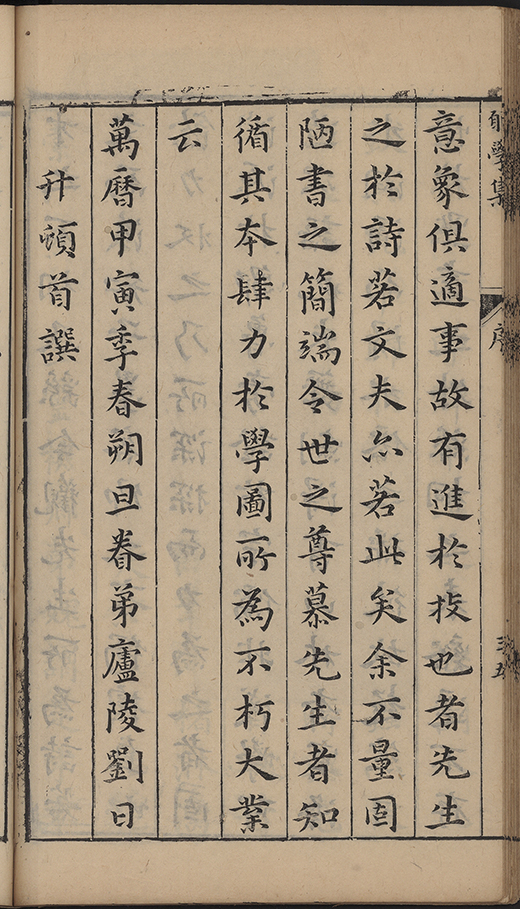 學集 序
意象俱適事故有進於技也者先生
之於詩若文夫亦若此矣余不量固
陋書之簡端令世之尊慕先生者知
循其本肆力於學圖所為不朽大業
云
萬曆甲寅季春朔旦眷弟廬陵劉日
升頓首譔